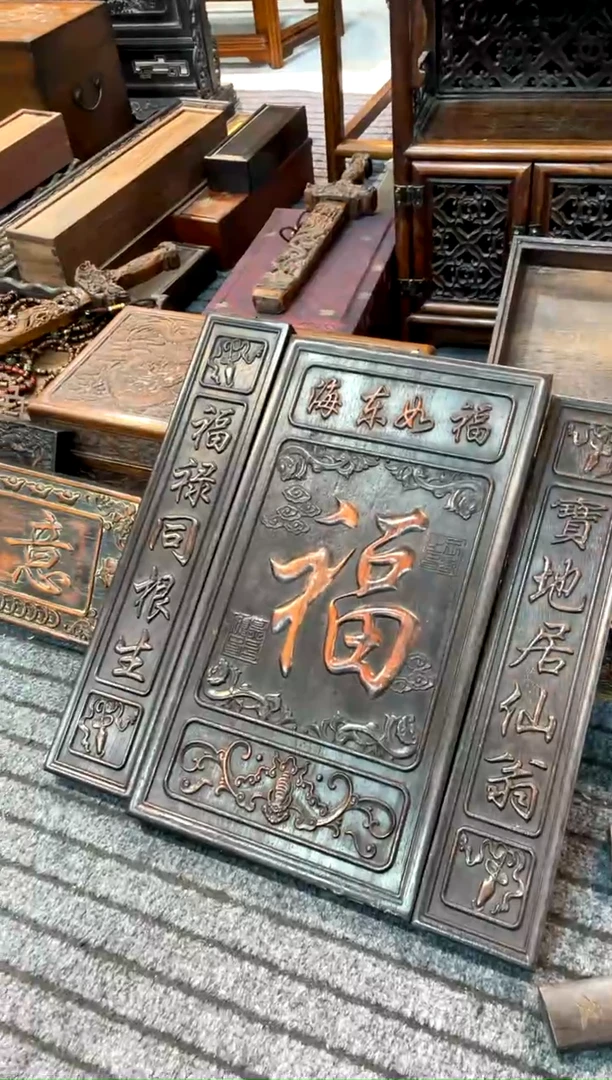 福如东海
福
寶地居仙翁
福禄同根生
意